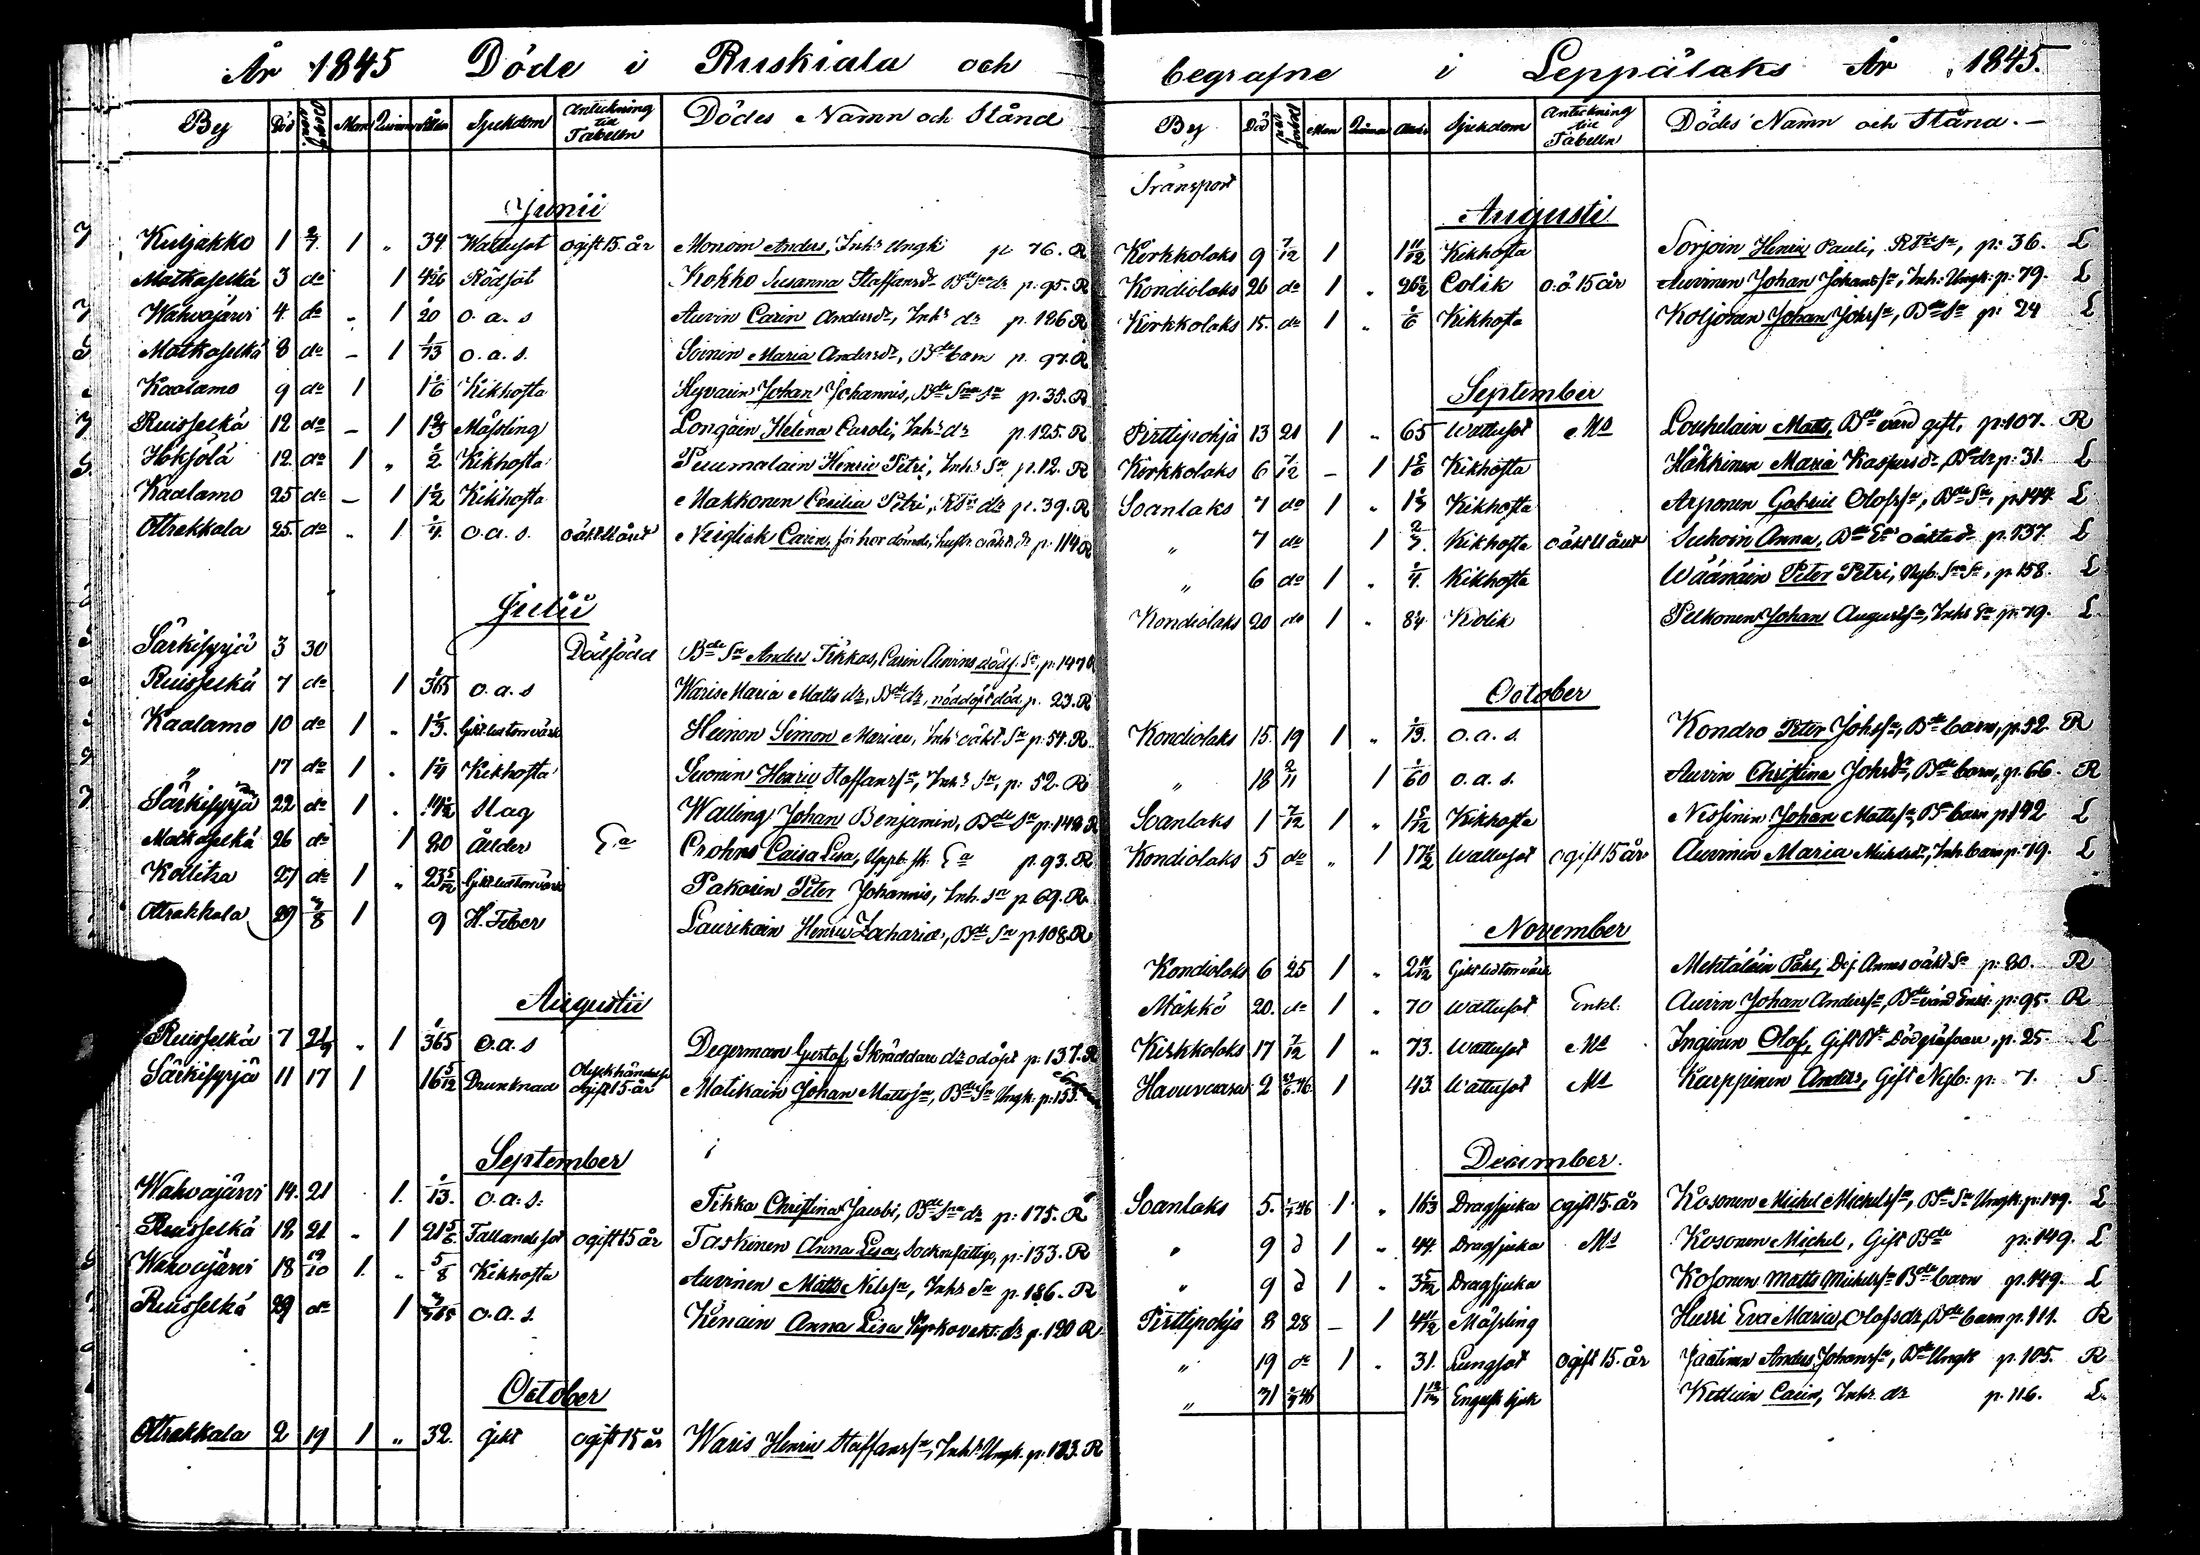 År 1845 Döde i Ruskiala och
By Död Man Quinna Ålder Sjukdom Anteckning till Tabellen Dödes Namn och Stånd
Junii
Kuljakko 1 2/7 1 „ 34 Wattusot ogift 15 år Monoin Anders, Inh:s Ungk p 76. R
Matkaselkä 3 do 1 Rödsot Kokko Susanna Staffansdr p. 95. R
Wahvajärvi 4 do „ 1 20 o. a. s Auvin Carin Andersdr, Inh:s dr p. 186 R
Matkaselkä 8 do – 1 1/13 o. a. s. Soinin Maria Andersdr, Bde barn p. 97. R
Kaalamo 9 do 1 1 1/6 Kikhosta Hyvärin Johan Johannis, Bde Sons Sn p. 35. R
Ruisselkä 12 do – 1 1 2/3 Måssling Longäin Helena Caroli, Inh:s dr p. 125. R
Hoksölä 12 do 1 „ 1/2 Kikhosta Puumalain Henric Petri, Inh:s Sn p. 12. R
Kaalamo 25 do – 1 1 1/2 Kikhosta Makkonen Cecilia Petri, dr p. 39. R
Otrakkala 25 do „ 1 1/4 o. a. s. oäkt Neiglick Carin, p. 114 R
Julii
Särkisyrjä 3 30 Dödfödd Bde Sn Anders Tikkas, Carin Auvins dödf. Sn, p. 147 R
Ruisselkä 7 do 1 1/365 o. a. s Waris Maria Matts dr, Bde dr, nöddöpt död, p. 23. R
Kaalamo 10 do 1 „ 1 1/3 Heinon Simon Mariae, Inh:s oäkt. Sn p. 54. R
„ 17 do 1 „ 1 1/4 Kikhosta Suonin Henric Staffanssn, Inh:s Sn, p. 52. R
Särkisyrjä 22 do 1 „ Slag Walling Johan Benjamin, Bde Sn p. 148 R
Matkaselkä 26 do 1 80 Ålder Ea Crohns Caisa Lisa, Ea p. 93. R
Kollitza 27 do 1 „ 23 Pakarin Peter Johannis, Inh. Sn p 69. R
Otrakkala 29 3/8 1 9 H. Feber Laurikain Henric Zachariae, Bde Sn p. 108. R
Augustii
Ruisselkä 7 1 1/365 o. a. s Degerman Gustaf, Skräddare dr odöpt p. 137. R
Särkisyrjä 11 17 1 16 5/12 Drunknad Olyckshändelse ogift 15 år Matikain Johan Mattssn, Bde Sn Ungk. p. 155.
September
Wahvajärvi 14 21 1 1/13. o. a. s. Tikka Christina Jacobi, Bde Sons dr p. 175. R
Ruisselkä 18 21 „ 1 21 5/6 Fallandesot ogift 15 år Taskinen Anna Lisa, Socknefattig, p. 133. R
Wahvajärvi 18 19/10 1 „ 5/8 Kikhosta Auvinen Matts Nilssn, Inh:s Sn p. 186. R
Ruisselkä 29 do 1 3/365 o. a. s. Kenain Anna Lisa dr p. 120 R
October
Otrakkala 2 19 1 „ 32. Gikt ogift 15 år Waris Henric Staffanssn, Inh:s Ungk. p. 123. R
begrafne i Leppälaks År 1845.
By Död Man Qvinna Sjukdom Anteckning till Tabellen Dödes Namn och Stånd.
Transport
Augusti
Kirkkolaks 9 7/12 1 1 11/12 Kikhosta Sorjoin Henric Pauli, p. 36. L
Kondiolaks 26 do 1 „ 26 1/2 Colik 15 år Auvinen Johan Johanssn, Inh:s Ungk: p: 79. L
Kirkkolaks 15. do 1 „ 1/6 Kikhosta Koljonen Johan Johssn, Bde Sn p: 24 L
September
Pirttipohja 13 21 1 „ 65 Wattusot Ms Louhelain Matts, Bde värd gift, p. 107. R
Kirkkolaks 6 7/12 – 1 1 5/6 Kikhosta Häkkinen Maria Kaspersdr, Bde dr p: 31. L
Soanlaks 7 do 1 „ 1 1/3 Kikhosta Arponen Gabriel Olofssn, Bde Sn, p. 144. L
„ 7 do 1 2/3. Kikhosta oäkt Suhoin Anna, oäkta dr p. 137. L
„ 6 do 1 „ 1/4. Kikhosta Wäänäin Peter Petri, Nyb. Sons Sn, p. 158. L
Kondiolaks 20 do 1 „ Kolik Pelkonen Johan Augustssn, Inh:s Sn p: 79. L
October
Kondiolaks 15 19 1 „ 1/13. o. a. s. Kondro Peter Johssn, Bde barn, p. 52. R
„ 18 2/11 1 1/60 o. a. s. Auvin Christina Johsdr, Bde barn, p. 66. R
Soanlaks 1 7/12 1 „ 1 5/12 Kikhosta Nissinen Johan Mattssn, Bde barn p. 142 L
Kondiolaks 5 do „ 1 17 1/2 Wattusot ogift 15 år Auvinen Maria Michelsdr, Inh. barn p. 79. L
November
Kondiolaks 6 25 1 „ 2 11/12 Mehtäläin Påhl, Annas oäkt. Sn p: 80. R
Mäkkö 20. do 1 „ 70 Wattusot Enkl. Auvin Johan Anderssn, Bde värd Enkl: p: 95. R
Kirkkolaks 17 7/12 1 „ 73. Wattusot Ms Inginen Olof, Gift Dödgräfvare, p. 25. L
Havuvaara 2 1 43 Wattusot Ms Karppinen Anders, Gift Nyb: p: 7. S
December.
Soanlaks 5. 1 „ 16 1/3 Dragsjuka ogift 15 år Kosonen Michel Michelssn, Bde Sn Ungk: p: 149. L
„ 9 d 1 „ 44. Dragsjuka Ms Kosonen Michel, Gift Bde p: 149. L
„ 9 d 1 „ 3 5/12 Dragsjuka Kosonen Matts Michelssn Bde barn p. 149. L
Pirttipohja 8 28 – 1 4 1/2 Måssling Hurri Eva Maria, Olofs dr, Bde barn p. 111. R
„ 19 do 1 „ 31. Lungsot ogift 15. år Jaatinen Anders Johanssn, Bde Ungk p. 105. R
„ 31 Engelsk sjuk Kettuin Carin, Inh:s dr p. 116. L.